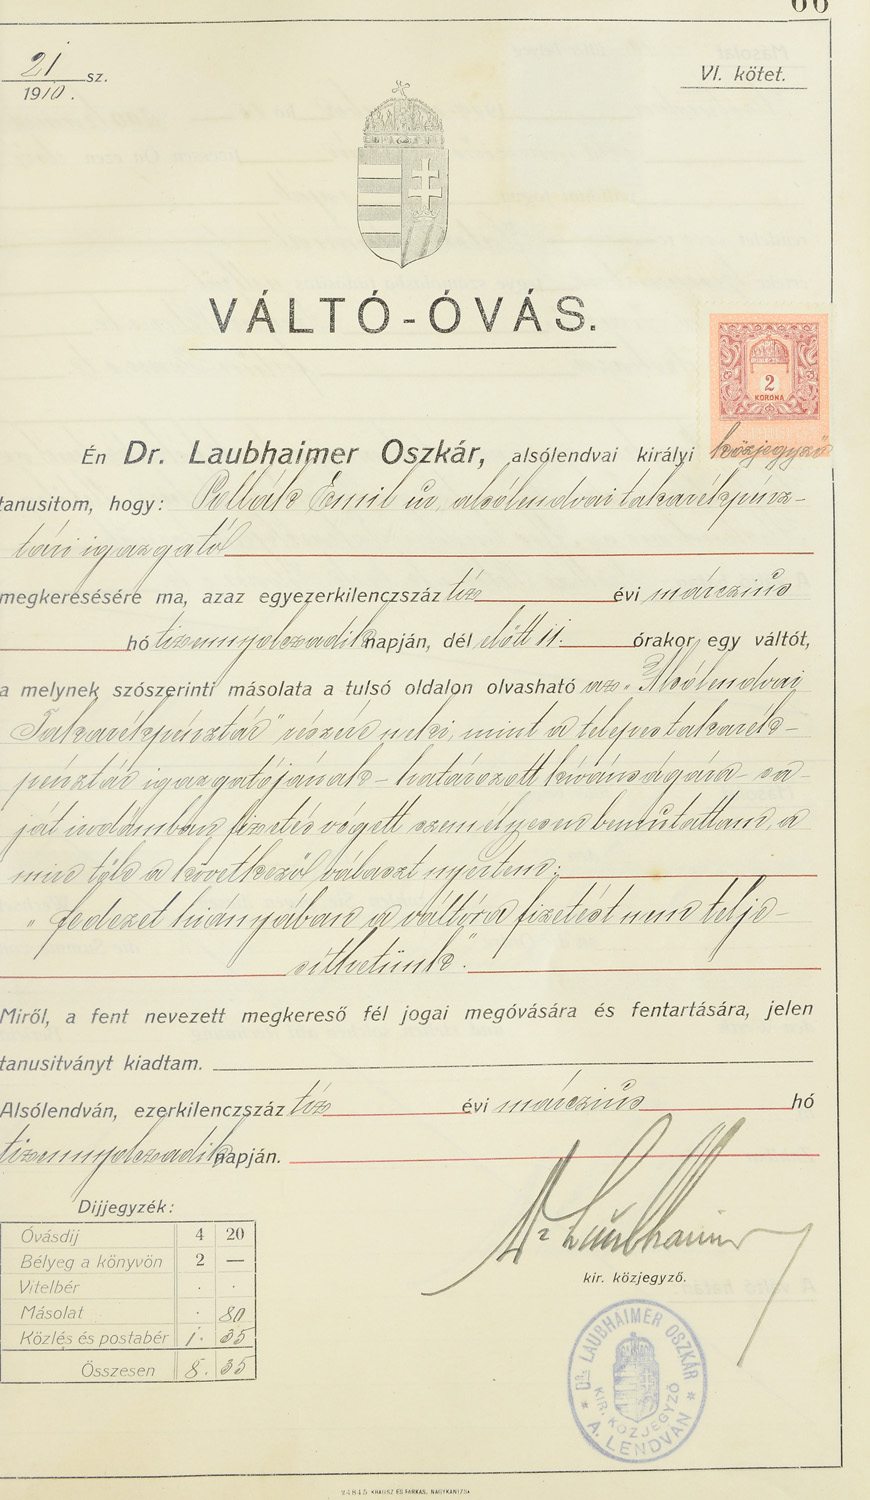 66
21 sz.
1910.
VI. kötet.
VÁLTÓ-ÓVÁS.
2
KORONA
Én Dr. Laubhaimer Oszkár, alsólendvai királyi közjegyző
tanusitom, hogy: Pollák Emil úr, alsólendvai takarékpénz-
tári igazgatól
megkeresésére ma, azaz egyezerkilenczszáz tíz évi márczius
hó tizennyolczadik napján, dél előtt 11. órakor egy váltót,
a melynek szószerinti másolata a tulsó oldalon olvasható az „Alsólendvai
Takarékpénztár" részére neki, mint a telepes takarék-
pénztár igazgatójának - határozott kívánságára - sa-
ját irodámban fizetés végett személyesen bemutattam, a
mire tőle a következől választ nyertem:
„fedezet hiányában a váltóra fizetést nem telje-
síthetünk".
Miről, a fent nevezett megkereső fél jogai megóvására és fentartására, jelen
tanusitványt kiadtam.
Alsólendván, ezerkilenczszáz tíz évi márczius hó
tizennyolczadik napján.
Dr Laubhaimer
kir. közjegyző.
Dijjegyzék:
Óvásdij 4 20
Bélyeg a könyvön 2 —
Vitelbér . .
Másolat . 80
Közlés és postabér 1. 35
Összesen 8. 35
Dr. LAUBHAIMER OSZKÁR
KIR. KÖZJEGYZŐ
* A. LENDVÁN *
24845 KRAUSZ ÉS FARKAS, NAGYKANIZSA